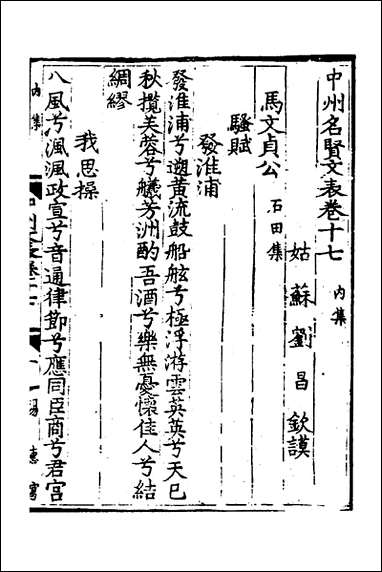 中州名賢文表卷十七 内集
姑蘇劉昌欽謨
馬文貞公 石田集
騷賦
發淮浦
發淮浦兮遡黃流鼓船舷兮極浮游雲英英兮天已
秋攬芙蓉兮艤芳洲酌吾酒兮樂無憂懷佳人兮結
綢繆
我思操
八風兮渢渢政宣兮音通律節兮應同臣商兮君宮
内集